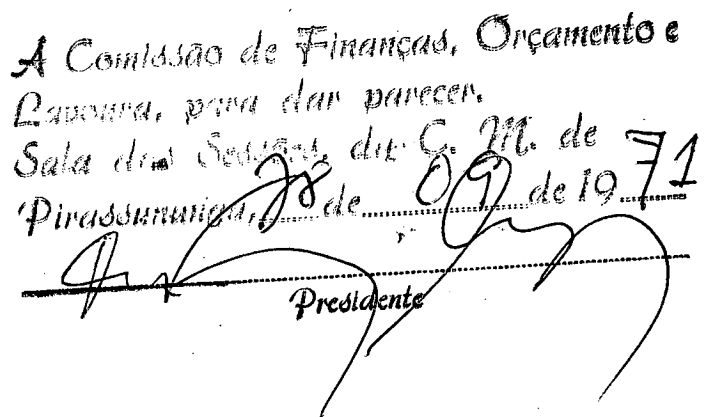 A Comissão de Finanças, Orçamento e
Lavoura, para dar parecer.
Sala das Sessões, da C. M. de
Pirassununga, 28 de 09 de 1971
Presidente